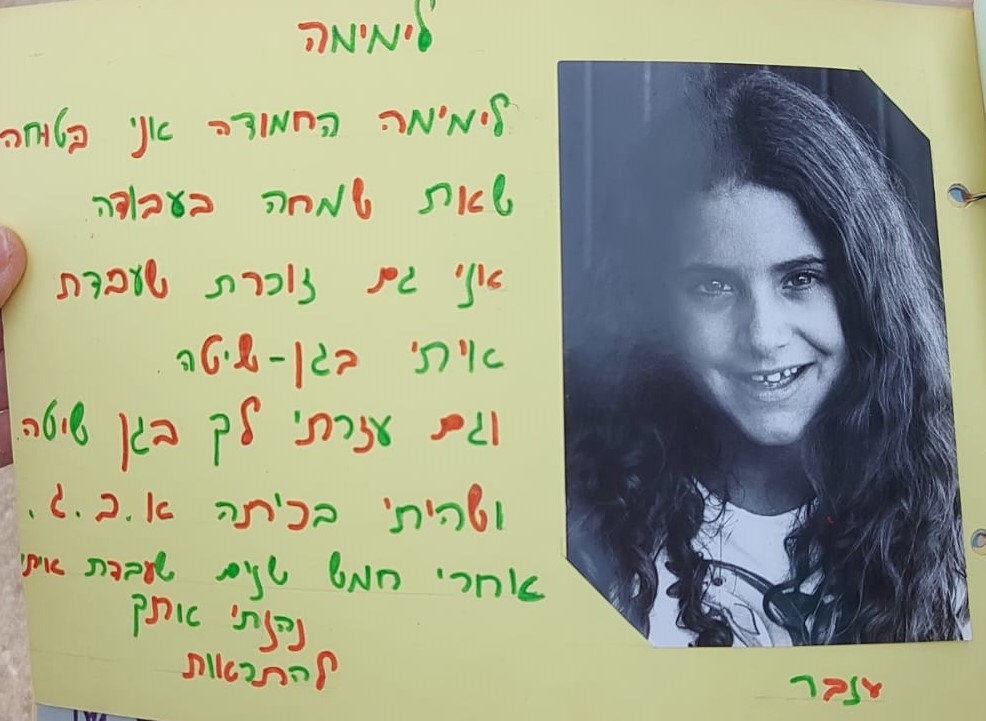 לימימה
לימימה החמודה אני בטוחה
שאת שמחה בעבודה
אני גם זוכרת שעבדת
איתי בגן-שיטה
וגם עזרתי לך בגן שיטה
ושהיתי בכיתה א.ב.ג.
אוחרי חמש שנים שעבדת איתי
נהנתי אותך
להתראות
ענבר